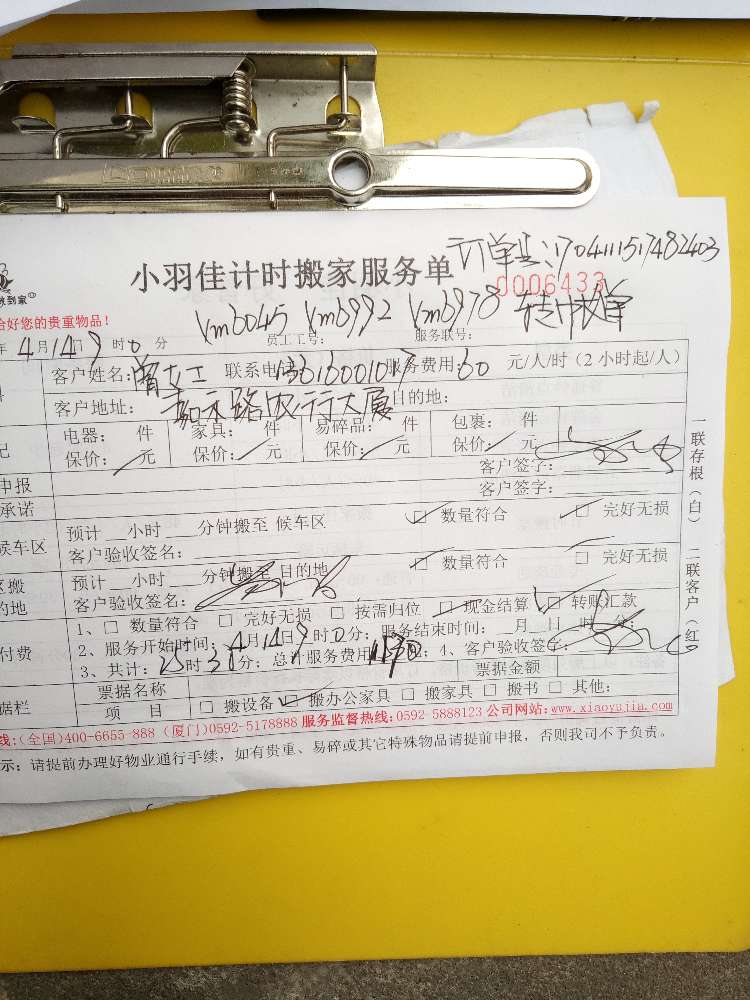 订单号:1704111517482403
小羽佳计时搬家服务单
0006433
到家
好您的贵重物品!
Vmb045 Vmb992 Vmb978
年4月14日9时0分 员工工号: 服务联号:
客户姓名: 曾女士 联系电 服务费用:60 元/人/时(2小时起/人)
客户地址: 嘉禾路农行大厦 目的地:
电器: 件 家具: 件 易碎品: 件 包裹: 件
保价: 元 保价: 元 保价: 元 保价: 元
客户签字:
申报
客户签字:
承诺
预计 小时 分钟搬至 候车区 □ 数量符合 □ 完好无损
候车区
客户验收签名:
预计 小时 分钟搬至 目的地 □ 数量符合 □ 完好无损
区搬
的地
客户验收签名:
1、□ 数量符合 □ 完好无损 □ 按需归位 □ 现金结算 □ 转账汇款
付费
2、服务开始时间: 4月14日9时0分; 服务结束时间: 月 日 时 分;
3、共计: 时 分; 总计服务费用 4、客户验收签字
票据名称 票据金额
据栏
项 目 □ 搬设备 □ 搬办公家具 □ 搬家具 □ 搬书 □ 其他:
线:(全国)400-6655-888 (厦门)0592-5178888 服务监督热线:0592-5888123 公司网站:www.xiaoyujia.com
示: 请提前办理好物业通行手续, 如有贵重、易碎或其它特殊物品请提前申报, 否则我司不予负责。
一联存根(白) 二联客户(红